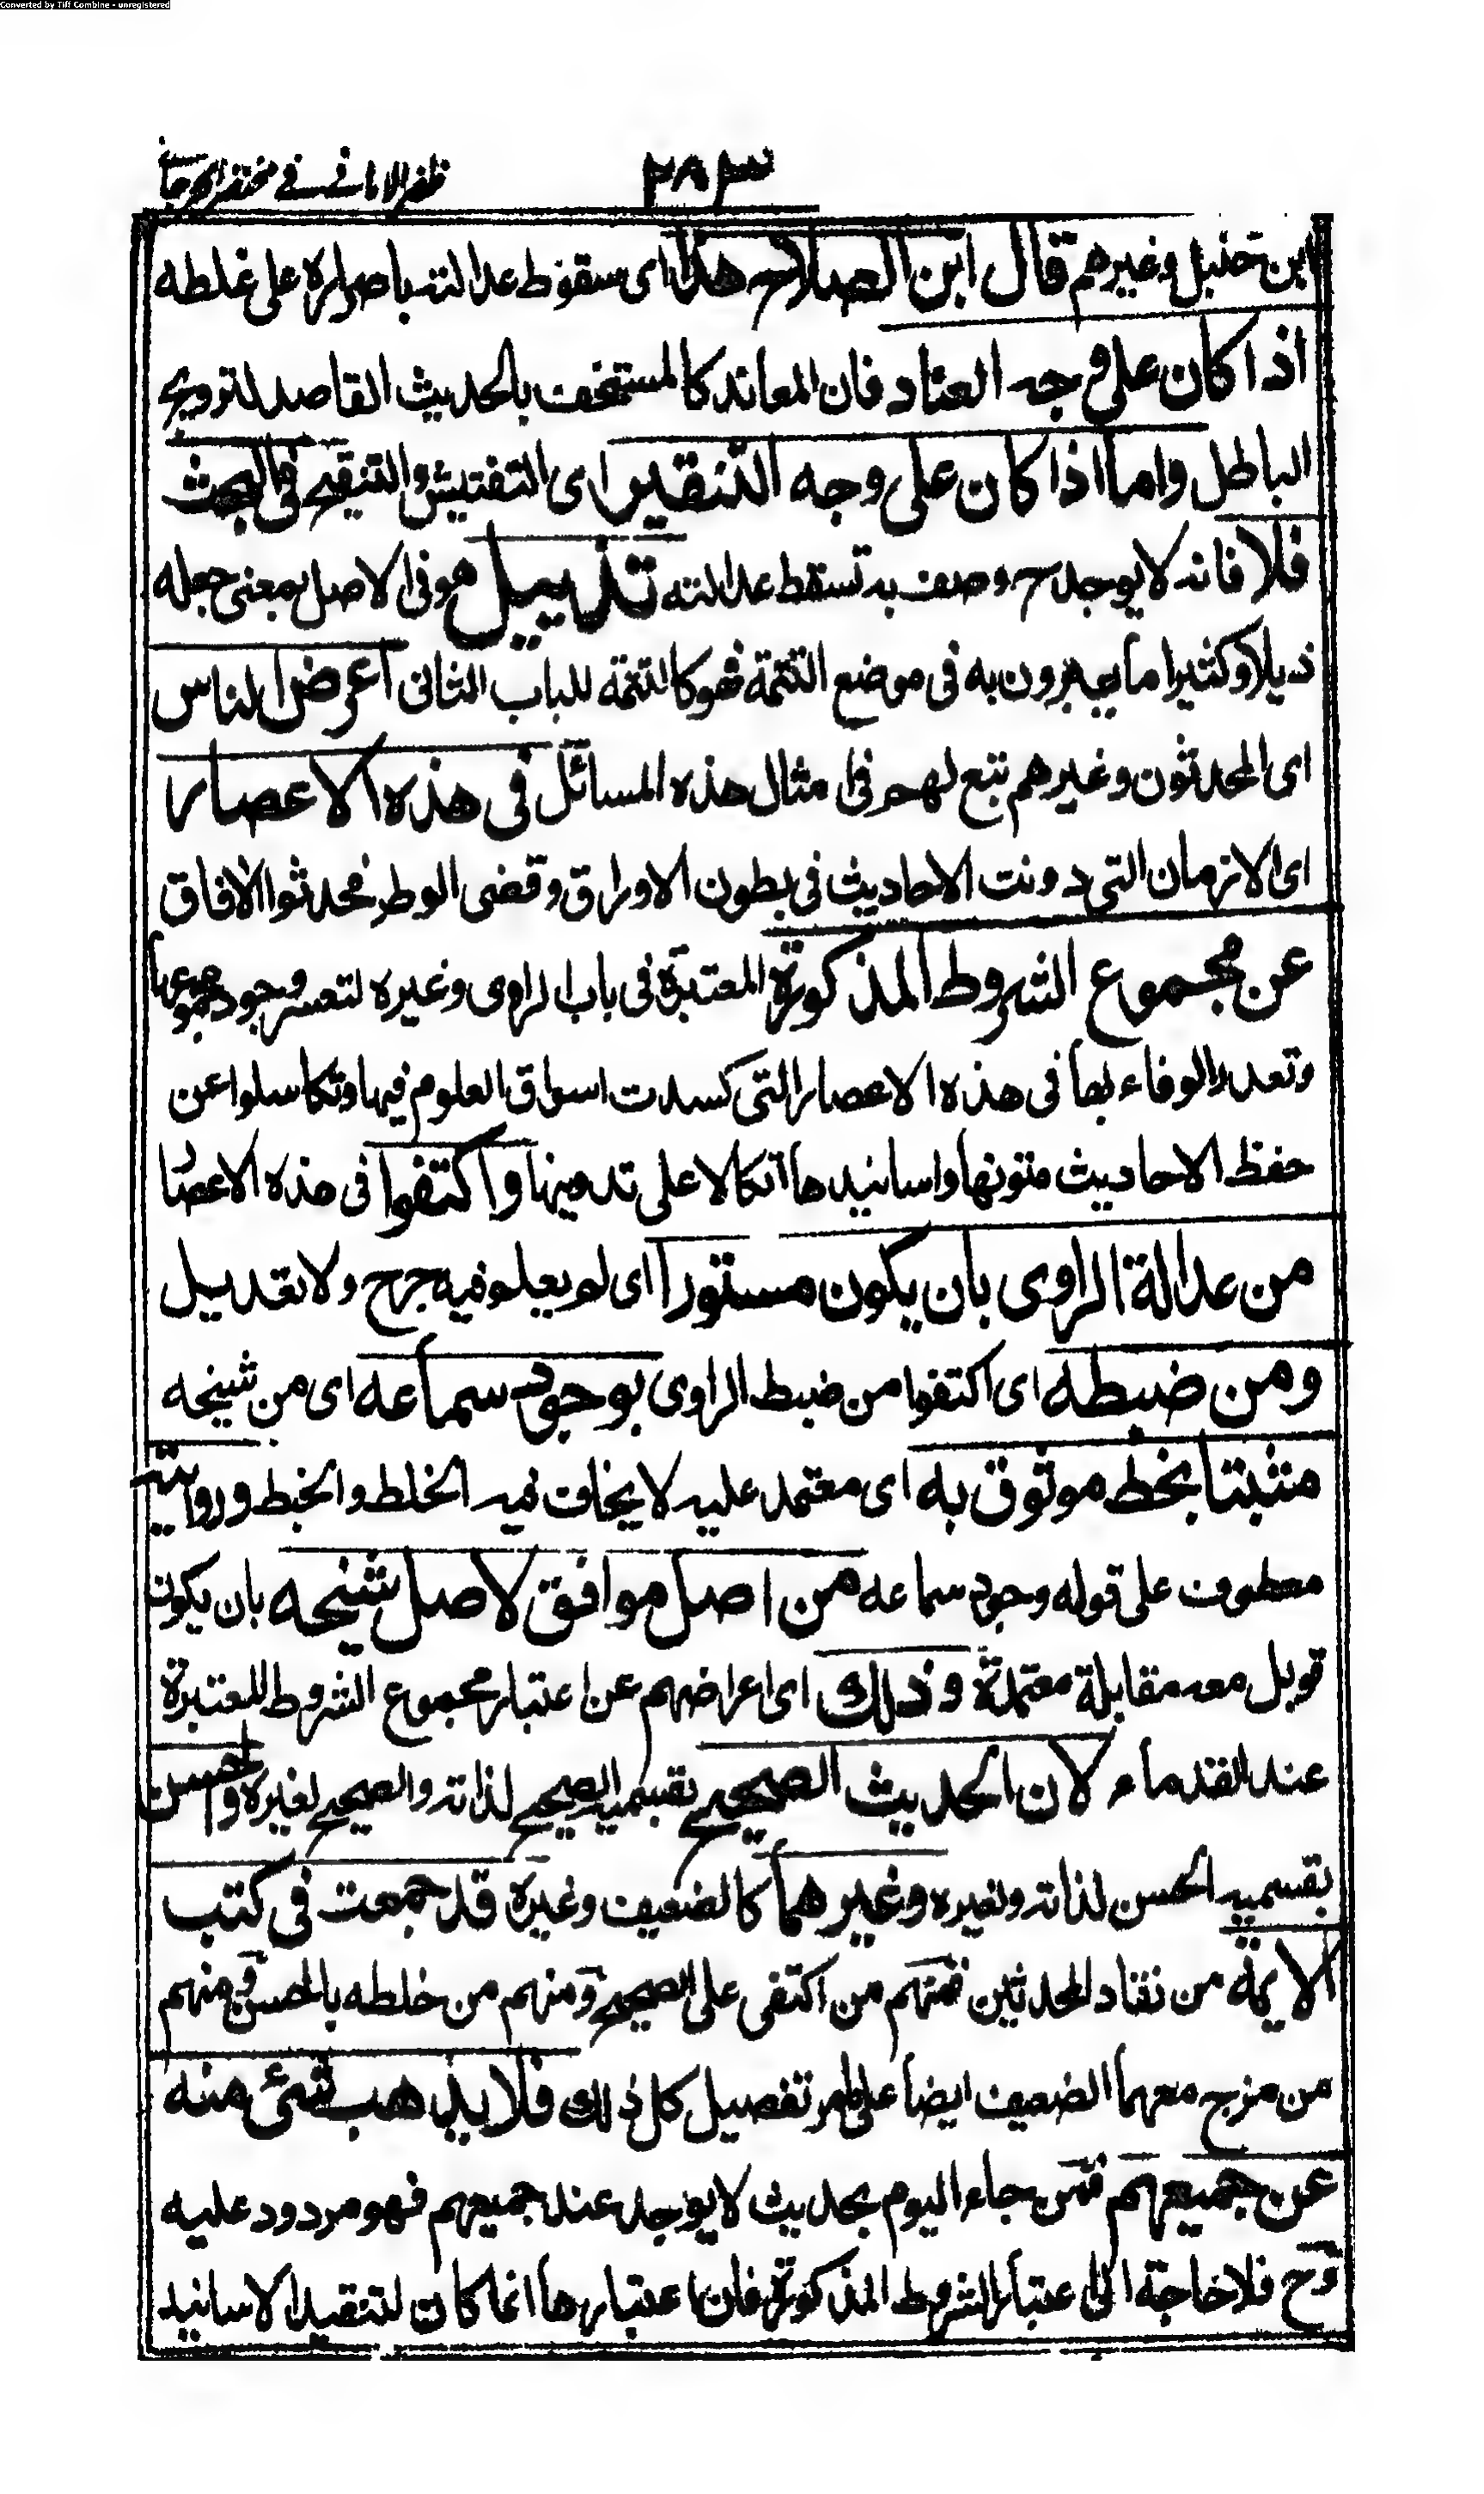 Converted by Tiff Combine - unregistered
٢٨٣
ظفر الامانی فی مختصر الجرجانی
ابن حنبل وغيرهم قال ابن الصلاح هذا ای سقوط عدالته باصراره علی غلطه
اذا كان علی وجه العناد فان المعاند كالمستخف بالحديث القاصد لترويج
الباطل واما اذا كان علی وجه التنقير ای التفتيش والتنقيح فی البحث
فلا فانه لا يوجد ح وصف به تسقط عدالته تذييل هو فی الاصل بمعنی جعله
ذيلا وكثيرا ما يعبرون به فی موضع التتمة فهو كالتتمة للباب الثانی اعرض الناس
ای المحدثون وغيرهم تبع لهم فی امثال هذه المسائل فی هذه الاعصار
ای الازمان التی دونت الاحاديث فی بطون الاوراق وقضی الوطر محدثوا الآفاق
عن مجموع الشروط المذكورة المعتبرة فی باب الراوی وغيره لتعسر وجود مجموعها
وتعذر الوفاء بها فی هذه الاعصار التی كسدت اسواق العلوم فيها وتكاسلوا عن
حفظ الاحاديث متونها واسانيدها اتكالا علی تدوينها واكتفوا فی هذه الاعصار
من عدالة الراوی بان يكون مستورا ای لم يعلم فيه جرح ولا تعديل
ومن ضبطه ای اكتفوا من ضبط الراوی بوجود سماعه ای من شيخه
مثبتا بخط موثوق به ای معتمد عليه لا يخاف فيه الخلط والخبط وروايته
معطوف علی قوله وجود سماعه من اصل موافق لاصل شيخه بان يكون
قوبل معه مقابلة معتمدة وذلك ای اعراضهم عن اعتبار مجموع الشروط المعتبرة
عند القدماء لان الحديث الصحيح بقسميه الصحيح لذاته والصحيح لغيره والحسن
بقسميه الحسن لذاته ولغيره وغيرهما كالضعيف وغيره قد جمعت فی كتب
الايمة من نقاد المحدثين فمنهم من اكتفی علی الصحيح ومنهم من خلطه بالحسن ومنهم
من مزج معهما الضعيف ايضا علی ما مر تفصيل كل ذلك فلا يذهب شئ منه
عن جميعهم فمن جاء اليوم بحديث لا يوجد عند جميعهم فهو مردود عليه
وح فلا حاجة الی اعتبار الشروط المذكورة فان اعتبارها انما كان لتنقيد الاسانيد